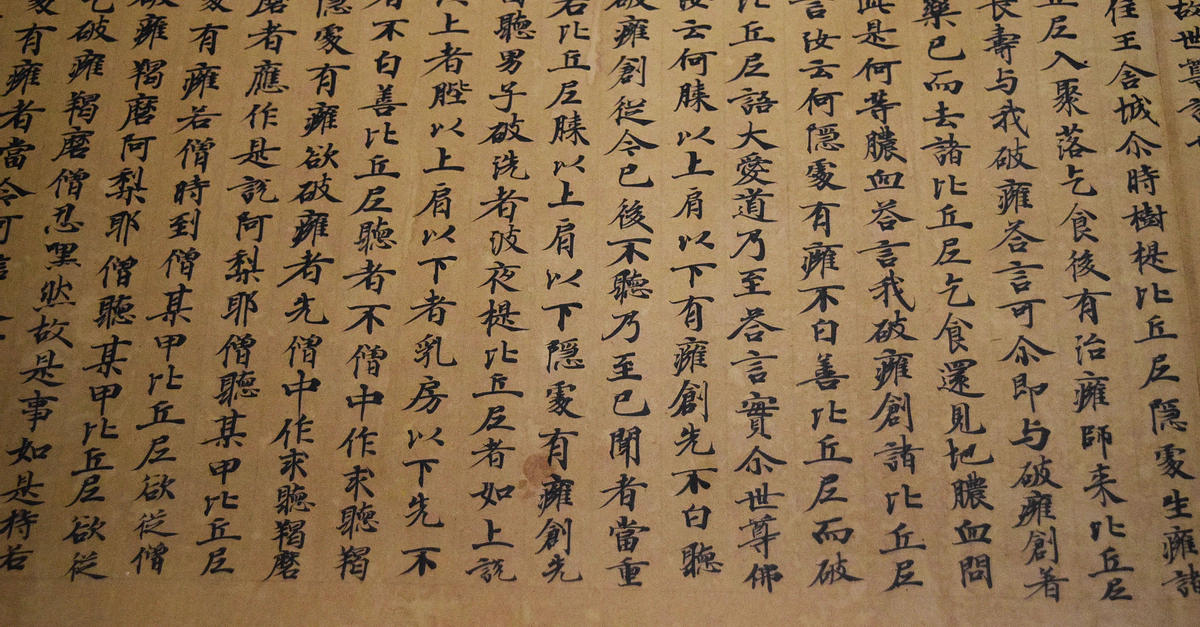 故世尊
住王舍城尒時樹提比丘尼隱處生癰諸
丘尼入聚落乞食後有治癰師来比丘尼
長壽与我破癰荅言可尒即与破癰創著
藥已而去諸比丘尼乞食還見地膿血問
此是何等膿血荅言我破癰創諸比丘尼
言汝云何隱處有癰不白善比丘尼而破
比丘尼語大愛道乃至荅言實尒世尊佛
汝云何膝以上肩以下有癰創先不白聽
破癰創從今已後不聽乃至已聞者當重
若比丘尼膝以上肩以下隱處有癰創先
聽男子破洗者波夜提比丘尼者如上說
以上者䏶以上肩以下者乳房以下先不
者不白善比丘尼聽者不僧中作求聽羯
隱處有癰欲破癰者先僧中作求聽羯磨
磨者應作是說阿梨耶僧聽某甲比丘尼
處有癰若僧時到僧某甲比丘尼欲從僧
破癰羯磨阿梨耶僧聽某甲比丘尼欲從
乞破癰羯磨僧忍黙然故是事如是持若
處有癰者當令可